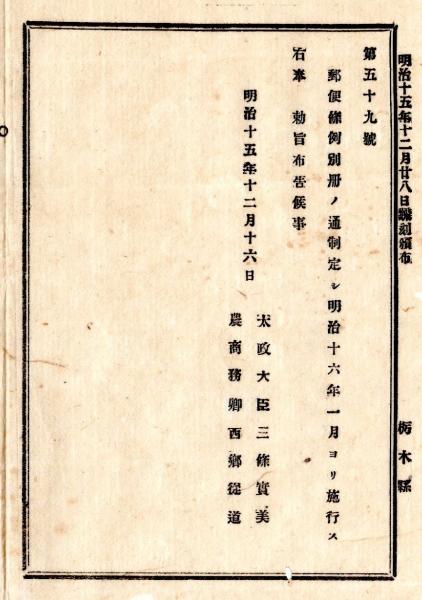 明治十五年十二月廿八日飜刻頒布
栃木縣
第五十九號
郵便條例別冊ノ通制定シ明治十六年一月ヨリ施行ス
右奉 勅旨布告候事
明治十五年十二月十六日
太政大臣三條實美
農商務卿西鄕從道